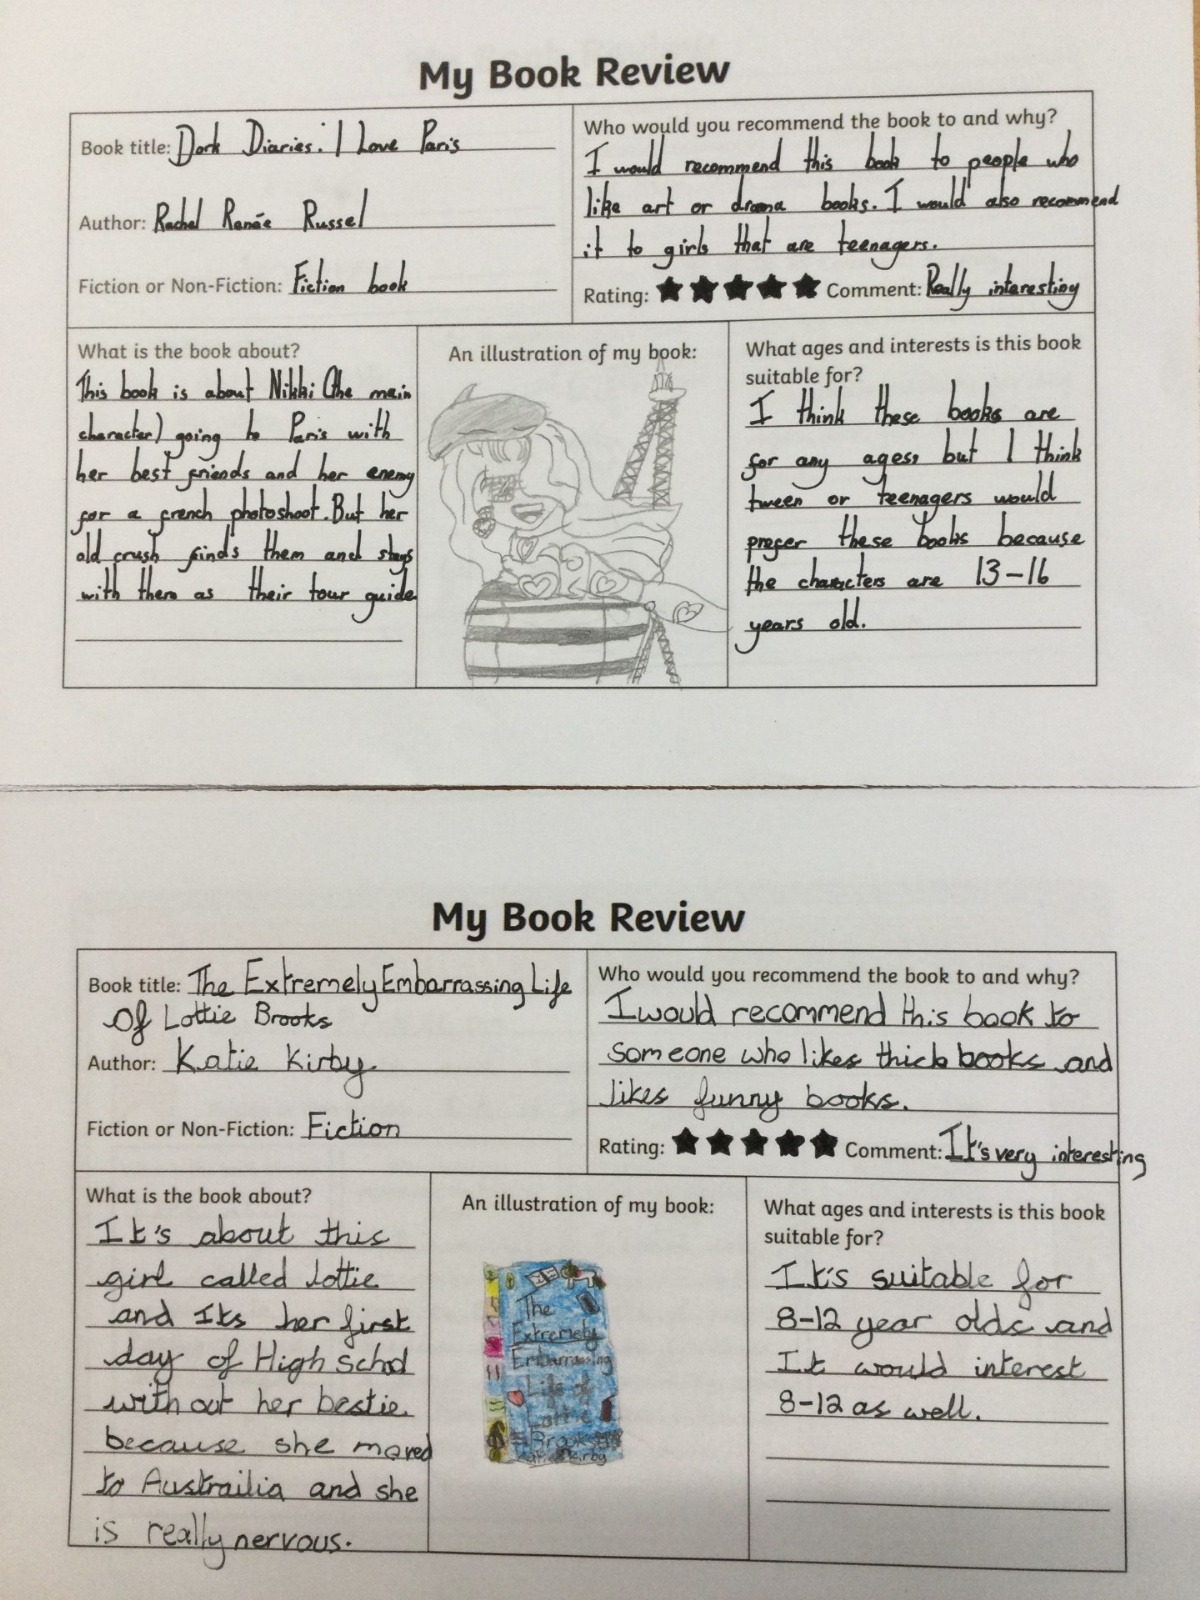 My Book Review
Book title: Dork Diaries: I Love Paris
Author: Rachel Renée Russel
Fiction or Non-Fiction: Fiction book
Who would you recommend the book to and why?
I would recommend this book to people who
like art or drama books. I would also recommend
it to girls that are teenagers.
Rating: Comment: Really interesting
What is the book about?
This book is about Nikki (the main
character) going to Paris with
her best friends and her enemy
for a french photoshoot. But her
old crush finds them and stays
with them as their tour guide
An illustration of my book:
What ages and interests is this book
suitable for?
I think these books are
for any ages, but I think
tween or teenagers would
prefer these books because
the characters are 13-16
years old.
My Book Review
Book title: The Extremely Embarrassing Life
Of Lottie Brooks
Author: Katie Kirby
Fiction or Non-Fiction: Fiction
Who would you recommend the book to and why?
I would recommend this book to
someone who likes thick books and
likes funny books.
Rating: Comment: It's very interesting
What is the book about?
It's about this
girl called lottie
and Its her first
day of High school
without her bestie
because she moved
to Austrailia and she
is really nervous.
An illustration of my book:
The
Extremely
Embarrassing
Life of
Lottie
Brooks
Katie Kirby
What ages and interests is this book
suitable for?
It's suitable for
8-12 year olds and
It would interest
8-12 as well.